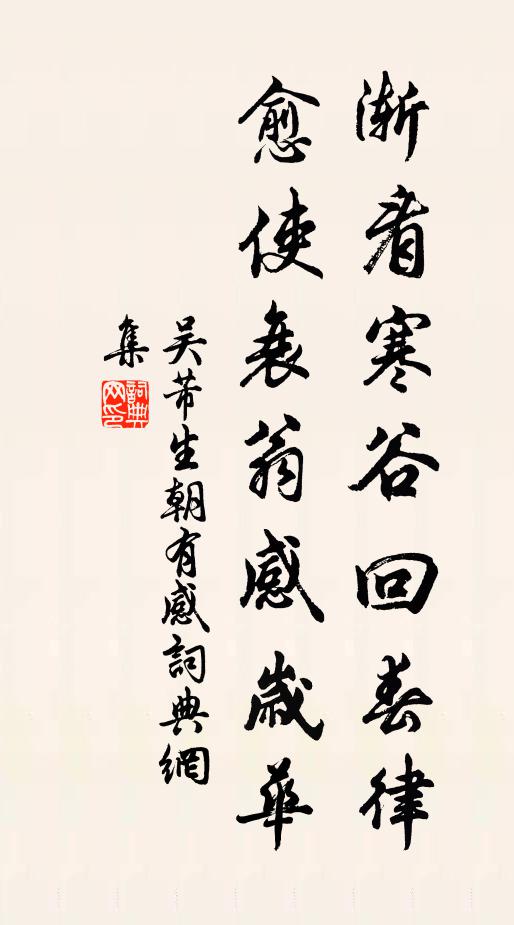 渐看寒谷回春律
愈使衰翁感歲華
吴芾生朝有感詞典網
集
詞典網印